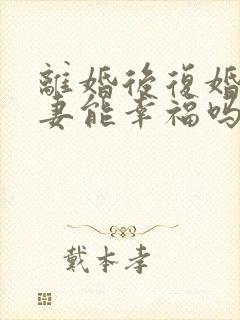 離婚後復婚
妻能幸福吗
戴本孝